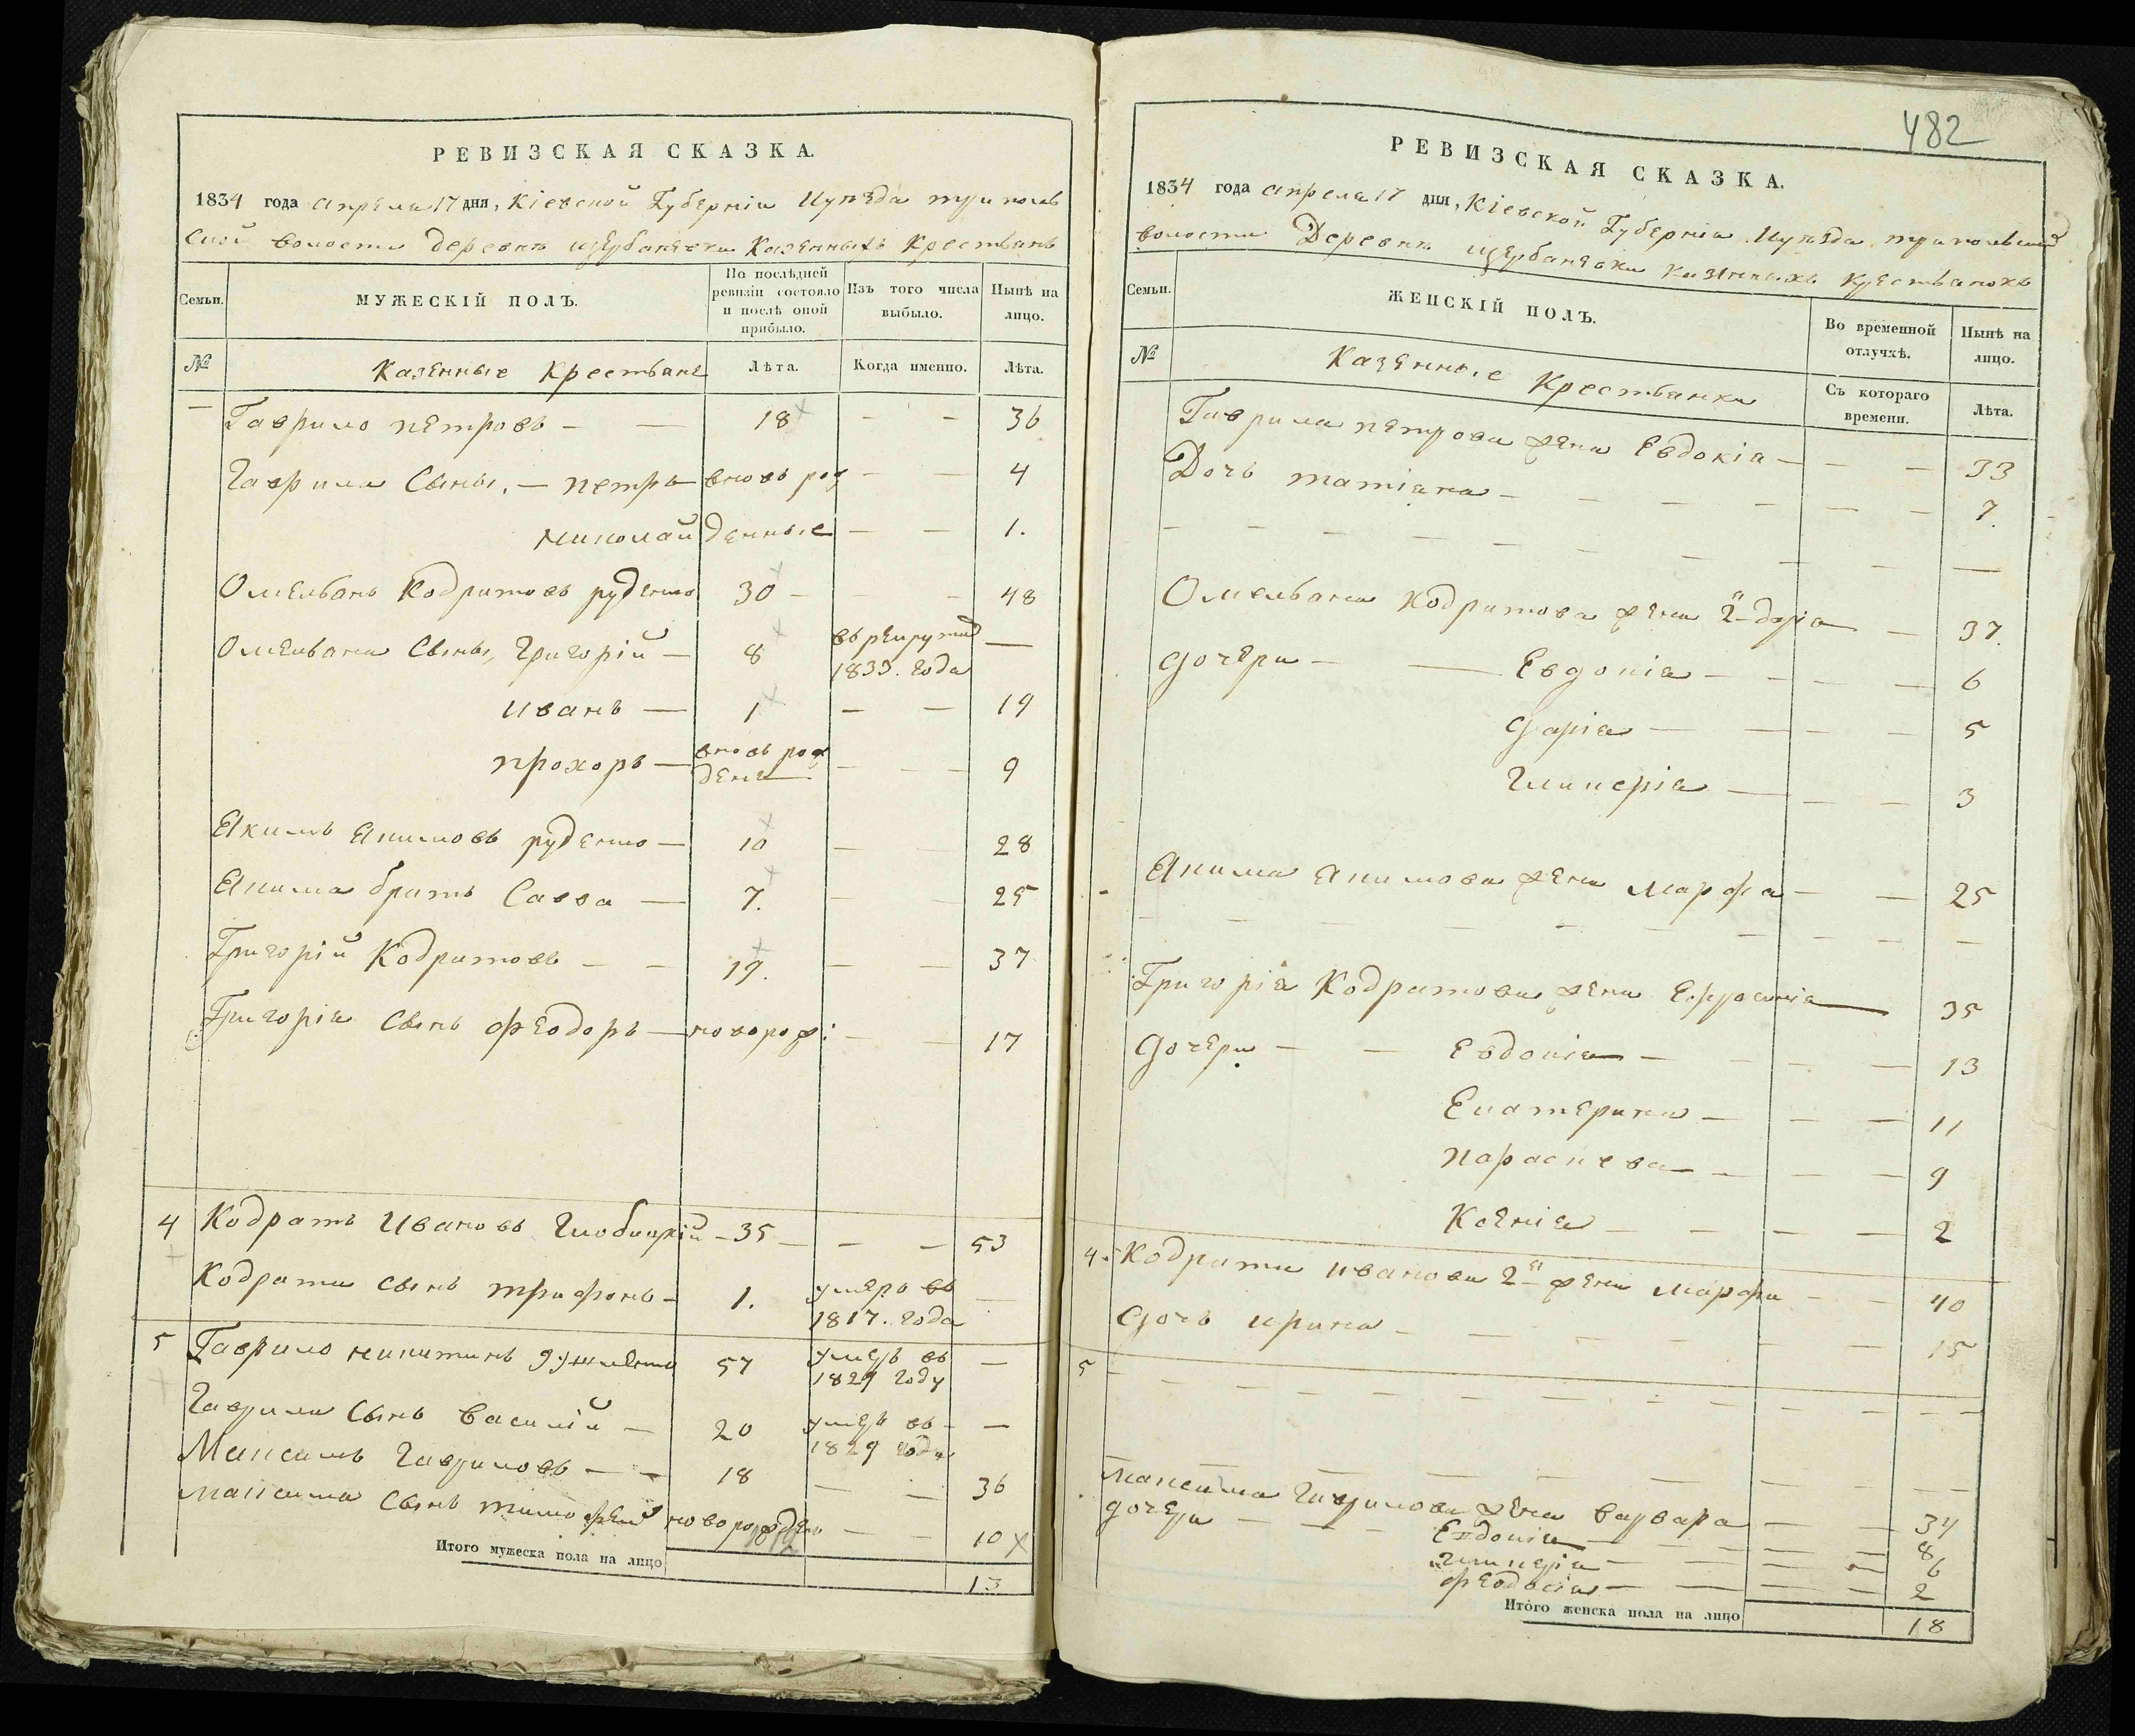 РЕВИЗСКАЯ СКАЗКА.
1834 года апреля 17 дня, Кіевской Губерніи Иуезда триполь
ской волости деревни щербаневки Казенныхъ Крестьянъ
Семьи.
МУЖЕСКІЙ ПОЛЪ.
По послѣдней ревизіи состояло и послѣ оной прибыло.
Изъ того числа выбыло.
Нынѣ на лицо.
№ Казенные Крестьяне Лѣта. Когда именно. Лѣта.
— Гаврило петровъ — — 18 — — 36
Гаврила Сыны, — петръ вновь рож — — 4
николай денные — — 1.
Омельянъ Кодратовъ руденко 30 — — — 48
Омельяна Сыны, Григорій — 8 въ рекруты 1833. года —
иванъ — 1 — — 19
прохоръ — вновь рож денъ — — — 9
Якимъ Якимовъ руденко — 10 — — 28
Якима братъ Савва — 7. — — 25
Григорій Кодратовъ — — 19. — — 37
Григорія Сынъ феодоръ — новорож: — — 17
4 Кодратъ Ивановъ Глобицкій — 35 — — — 53
Кодрата сынъ трифонъ — 1. умеръ въ 1817. года —
5 Гаврило никитинъ 57 умеръ въ 1829 году —
Гаврила Сынъ Василій — 20 умеръ въ 1829 года —
Максимъ Гавриловъ — — 18 — — 36
Максима Сынъ тимофей новорожден — — 10
Итого мужеска пола на лицо 13
482
РЕВИЗСКАЯ СКАЗКА.
1834 года апреля 17 дня, Кіевской Губерніи Иуезда трипольской
волости Деревни щербаневки казенныхъ крестьянокъ
Семьи.
ЖЕНСКІЙ ПОЛЪ.
Во временной отлучкѣ.
Нынѣ на лицо.
№ Казенные Крестьянки Съ котораго времени. Лѣта.
Гаврила петрова жена Евдокія — — — 33
Дочь татіяна — — — — — — 7.
Омельяна Кодратова жена 2-я дарія — — 37.
дочери — — Евдокія — — — — 6
дарія — — — — 5
Гликерія — — — 3
Якима Якимова жена Марфа — — 25
Григорія Кодратова жена Ефросинія — 35
дочери — — Евдокія — — — — 13
Екатерина — — — 11
параскева — — — 9
Ксенія — — — — 2
4. Кодрата иванова 2-я жена Марфа — — 40
дочь ирина — — — — — 15
5 — — — — — — — — — —
Максима Гаврилова жена варвара — — 34
дочери — — — Евдокія — — — — 8
гликерія — — — — 6
феодосія — — — — 2
Итого женска пола на лицо 18